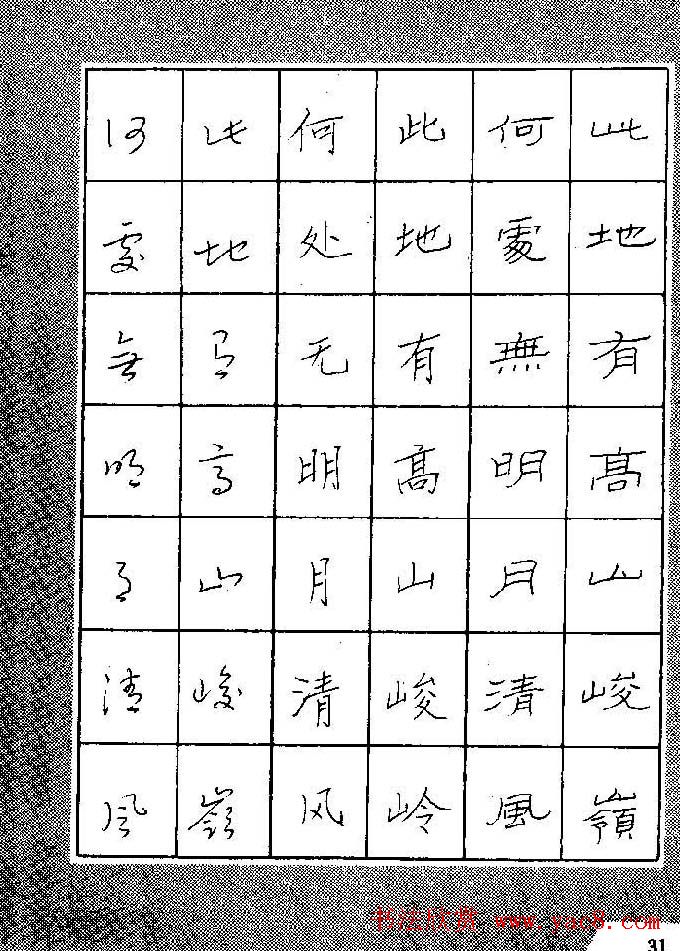 此地有高山峻嶺
何處無明月清風
此地有高山峻岭
何处无明月清风
此地有高山峻嶺
何處無明月清風
书法欣赏 www.yac8.com
31